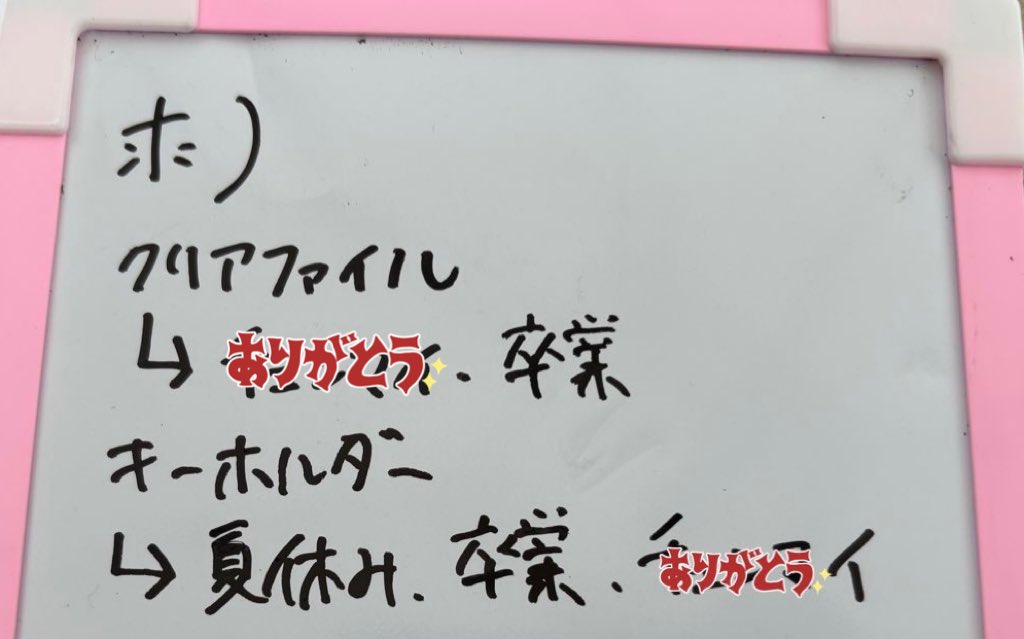 求)
クリアファイル
↳ ありがとう. 卒業
キーホルダー
↳ 夏休み. 卒業. ありがとう